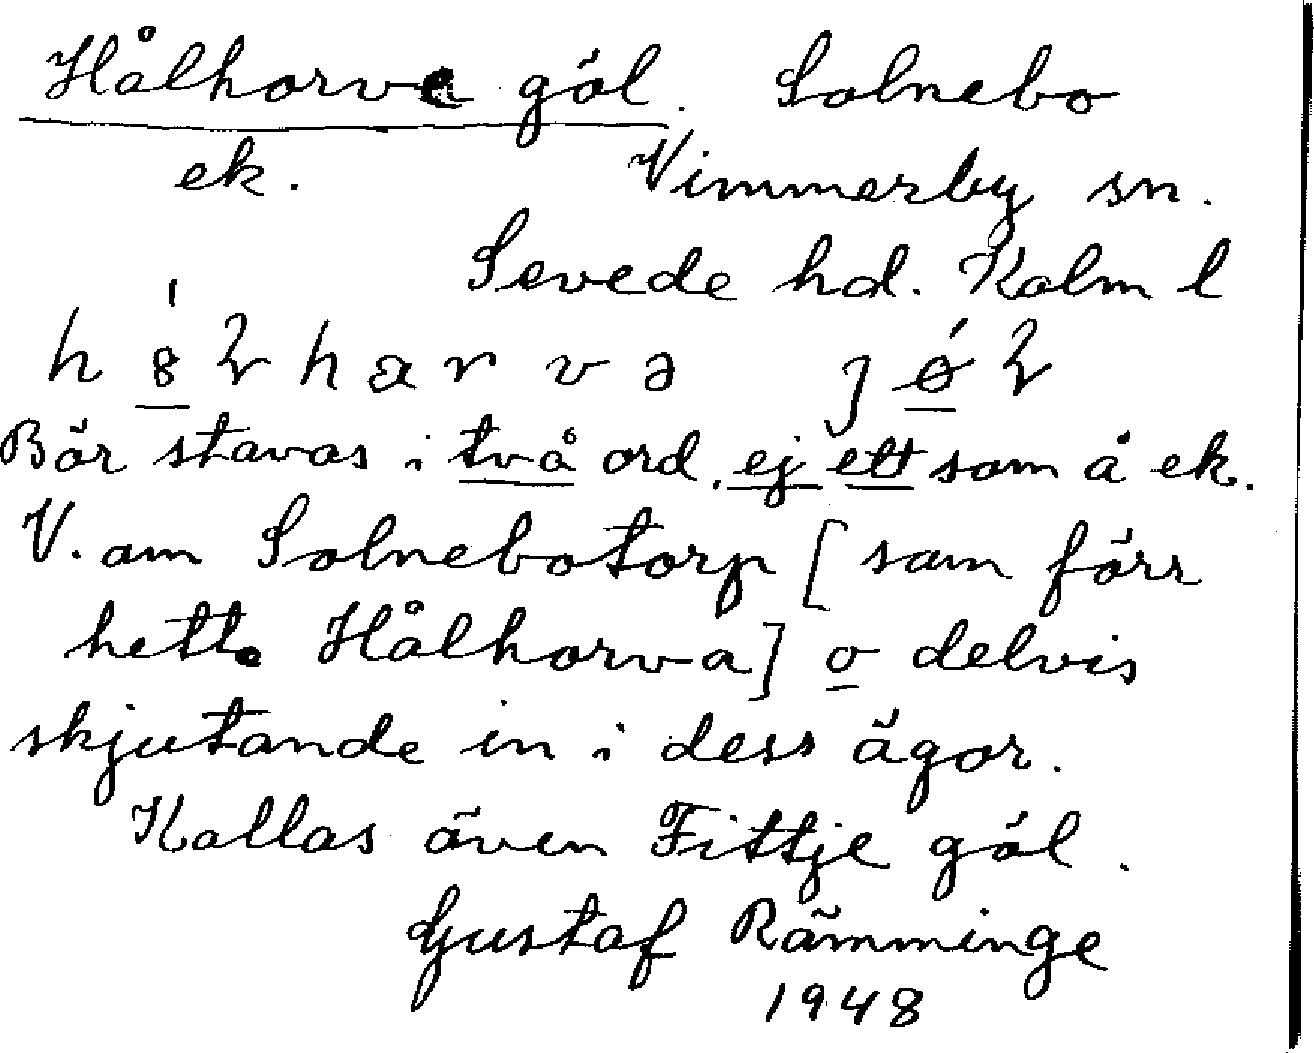 Hålhorve göl. Solnebo
ek. Vimmerby sn.
Sevede hd. Kalm l
Bör stavas i två ord, ej ett som å ek.
V. om Solnebotorp [som förr
hette Hålhorva] o delvis
skjutande in i dess ägor.
Kallas även Fittje göl.
Gustaf Rämminge
1948